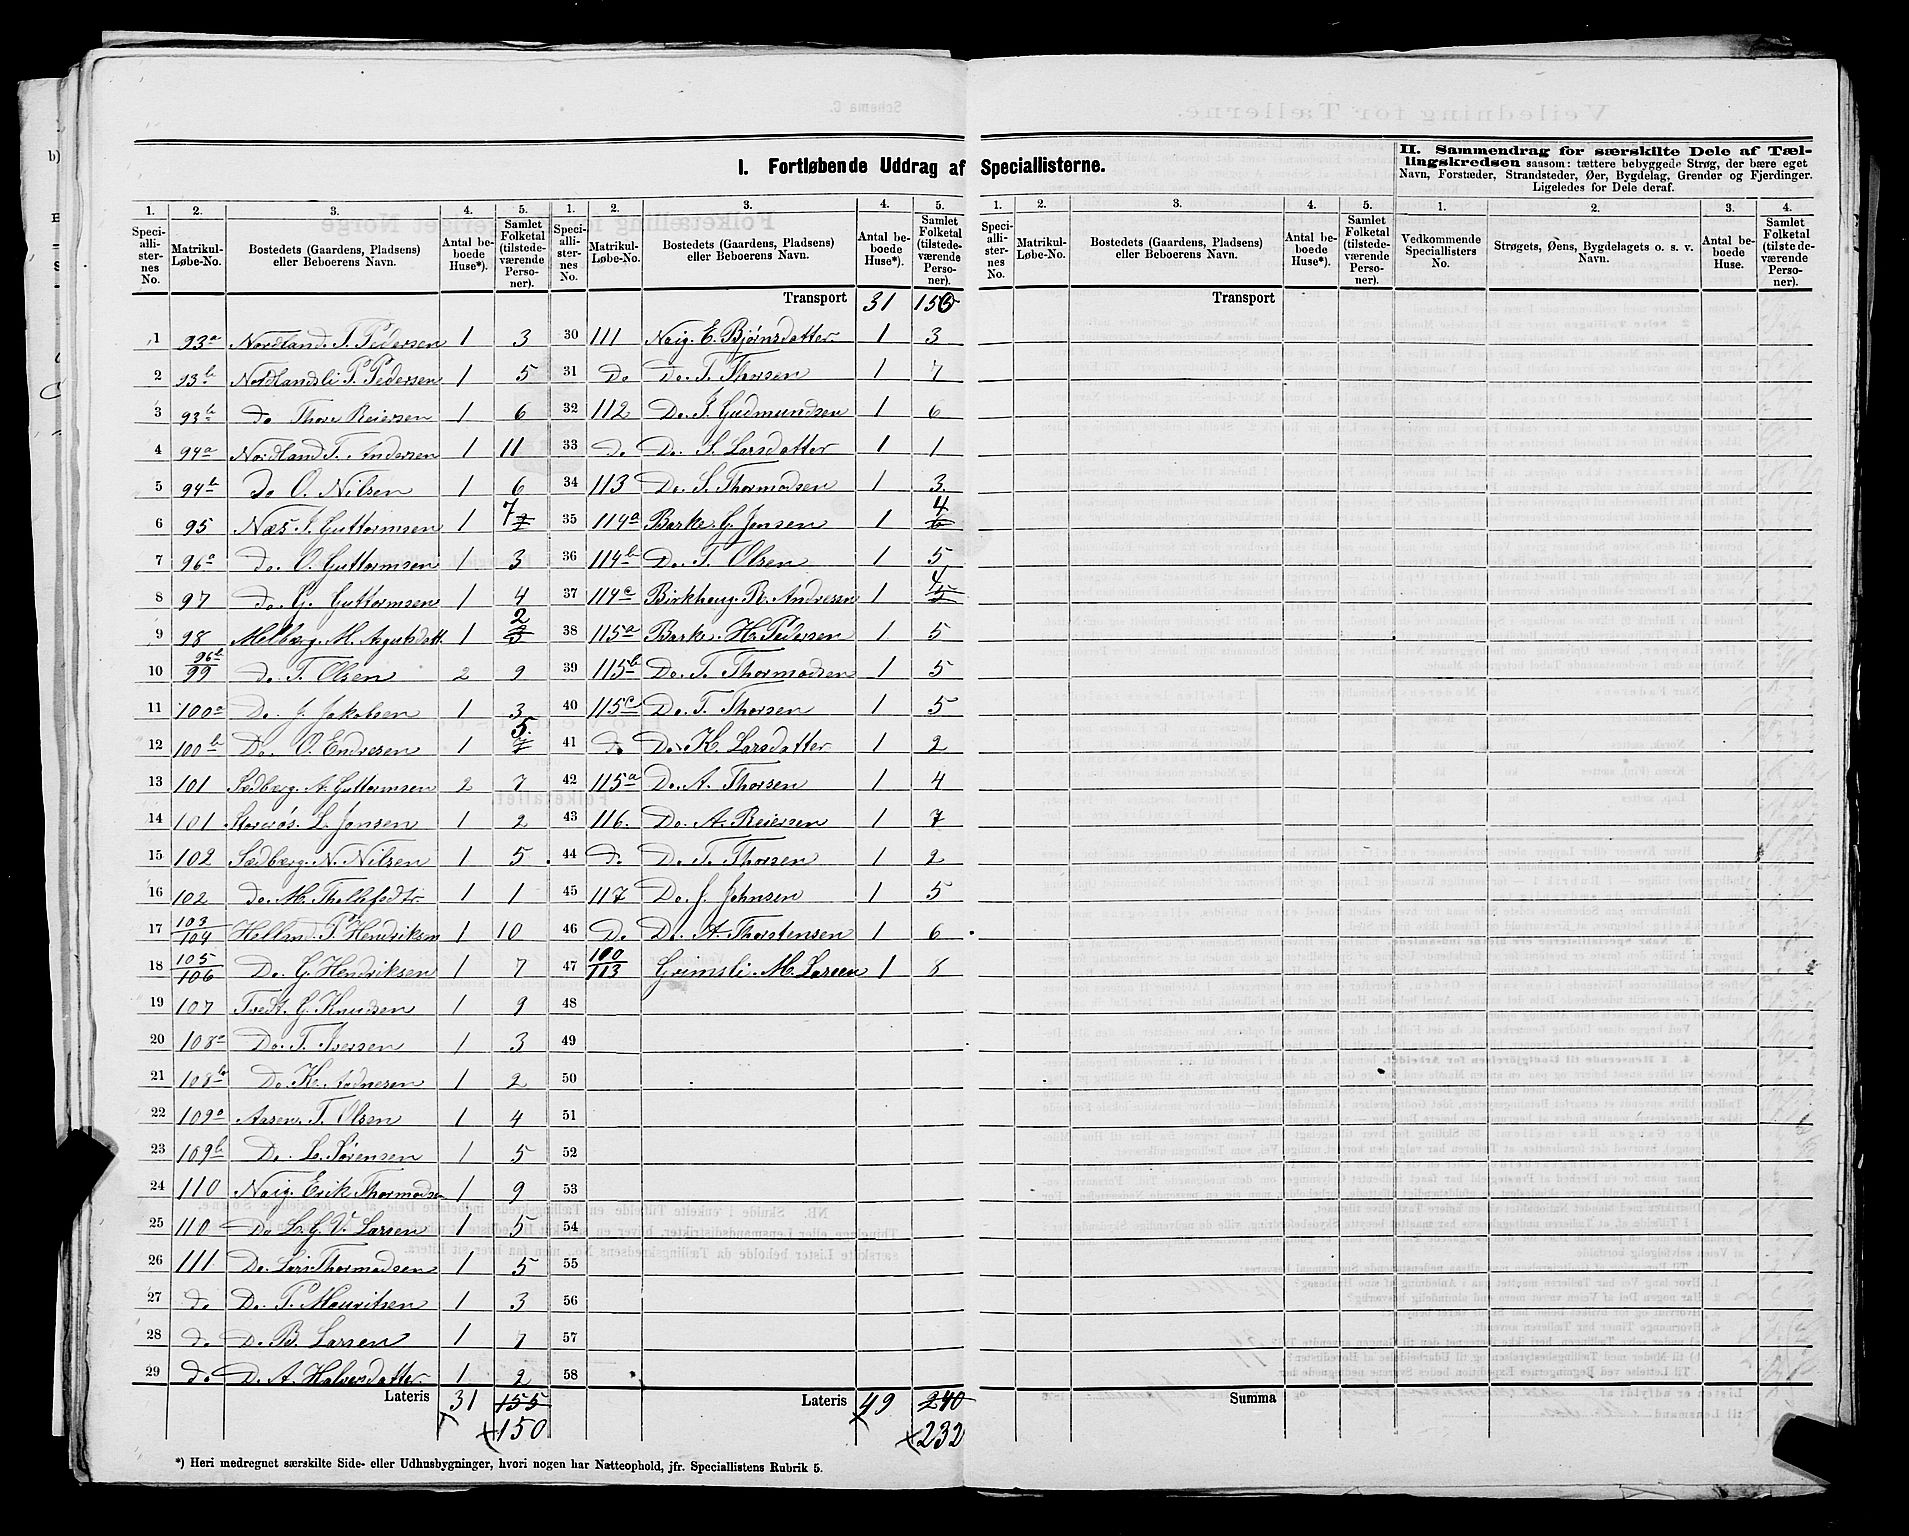 I. Fortløbende Uddrag af Speciallisterne.
II. Sammendrag for særskilte Dele af Tællingskredsen saasom: tættere bebyggede Strøg, der bære eget Navn, Forstæder, Strandsteder, Øer, Bygdelag, Grender og Fjerdinger. Ligeledes for Dele deraf.
1. 2. 3. 4. 5. 1. 2. 3. 4. 5. 1. 2. 3. 4. 5. 1. 2. 3. 4.
Speciallisternes No. Matrikul-Løbe-No. Bostedets (Gaardens, Pladsens) eller Beboerens Navn. Antal beboede Huse*). Samlet Folketal (tilstedeværende Personer).
Speciallisternes No. Matrikul-Løbe-No. Bostedets (Gaardens, Pladsens) eller Beboerens Navn. Antal beboede Huse*). Samlet Folketal (tilstedeværende Personer).
Speciallisternes No. Matrikul-Løbe-No. Bostedets (Gaardens, Pladsens) eller Beboerens Navn. Antal beboede Huse*). Samlet Folketal (tilstedeværende Personer).
Vedkommende Speciallisters No. Strøgets, Øens, Bygdelagets o. s. v. Navn. Antal beboede Huse. Samlet Folketal (tilstedeværende Personer).
1 93a Nordland. T. Pedersen 1 3
2 93b Nordlandsli P. Pedersen 1 5
3 93b do Thore Reiersen 1 6
4 94a Nordland T. Andersen 1 11
5 94b Do O. Nilsen 1 6
6 95 Næs. J. Guttormsen 1 7
7 96a do O. Guttormsen 1 3
8 97 do G. Guttormsen 1 4
9 98 Melberg. M. 1 2
10 96b/99 do T. Olsen 2 9
11 100a Do. J. Jakobsen 1 3
12 100b Do. O. Endresen 1 5 7
13 101 Sedberg. A. Guttormsen 2 7
14 101 Storrøs. L. Jensen 1 2
15 102 Sedberg. N. Nilsen 1 5
16 102 do. M. Thollefsdtr 1 1
17 103/104 Helland P. Hendriksen 1 10
18 105/106 Do. G. Hendriksen 1 7
19 107 Tvedt. G. Knudsen 1 9
20 108a Do. T. Iversen 1 3
21 108b Do. K. Aadnesen 1 2
22 109a Aasen. T. Olsen 1 4
23 109b Do. L. Sørensen 1 5
24 110 Naig. Erik Thormodsen 1 9
25 110 Do L. G. V. Larsen 1 5
26 111 Do. Lars Thormodsen 1 5
27 do Do. P. Mouritsen 1 3
28 do D. B. Larsen 1 7
29 do D. A. Halversdatter 1 2
Lateris 31 155
150
Transport 31 150
30 111 Naig. E. Bjørnsdatter 1 3
31 Do Do. T. Thorsen 1 7
32 112 Do. T. Gudmundsen 1 6
33 do Do. S. Larsdatter 1 1
34 113 Do. S. Thormodsen 1 3
35 114a Barke. G. Jensen 1 4 6
36 114b Do. T. Olsen 1 5
37 114c Birkhoug. R. Andresen 1 4 5
38 115a Barke. H. Pedersen 1 5
39 115b Do. T. Thormodsen 1 5
40 115c Do. T. Thorsen 1 5
41 do Do. K. Larsdatter 1 2
42 115a Do. A. Thorsen 1 4
43 116. Do. A. Reiersen 1 7
44 do Do. T. Thorsen 1 2
45 117 Do. J. Johnsen 1 5
46 Do Do. A. Thorstensen 1 6
47 100/113 Grimsli. M. Larsen 1 8
48
49
50
51
52
53
54
55
56
57
58
Lateris 49 240
232
Transport
Summa
*) Heri medregnet særskilte Side- eller Udhusbygninger, hvori nogen har Natteophold, jfr. Speciallistens Rubrik 5.